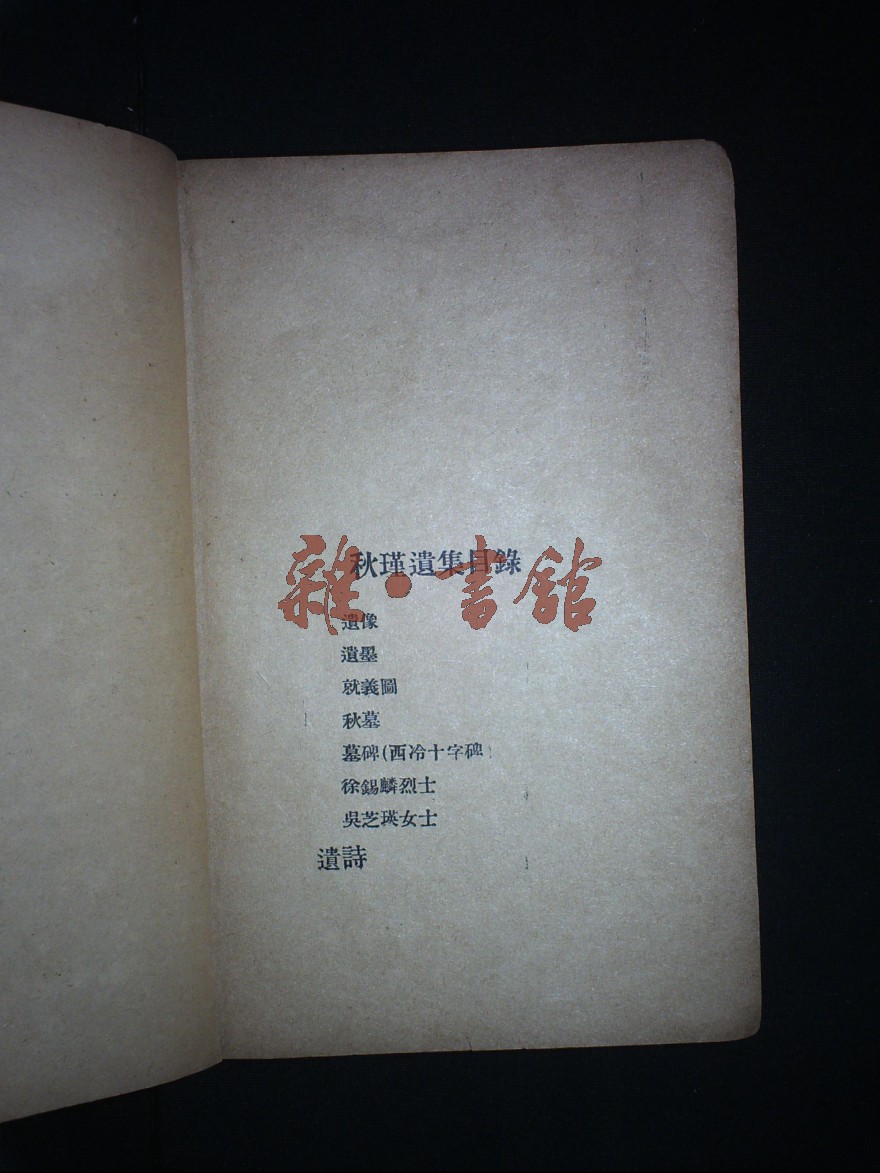 秋瑾遺集目錄
雜·書館
遺像
遺墨
就義圖
秋墓
墓碑(西冷十字碑)
徐錫麟烈士
吳芝瑛女士
遺詩